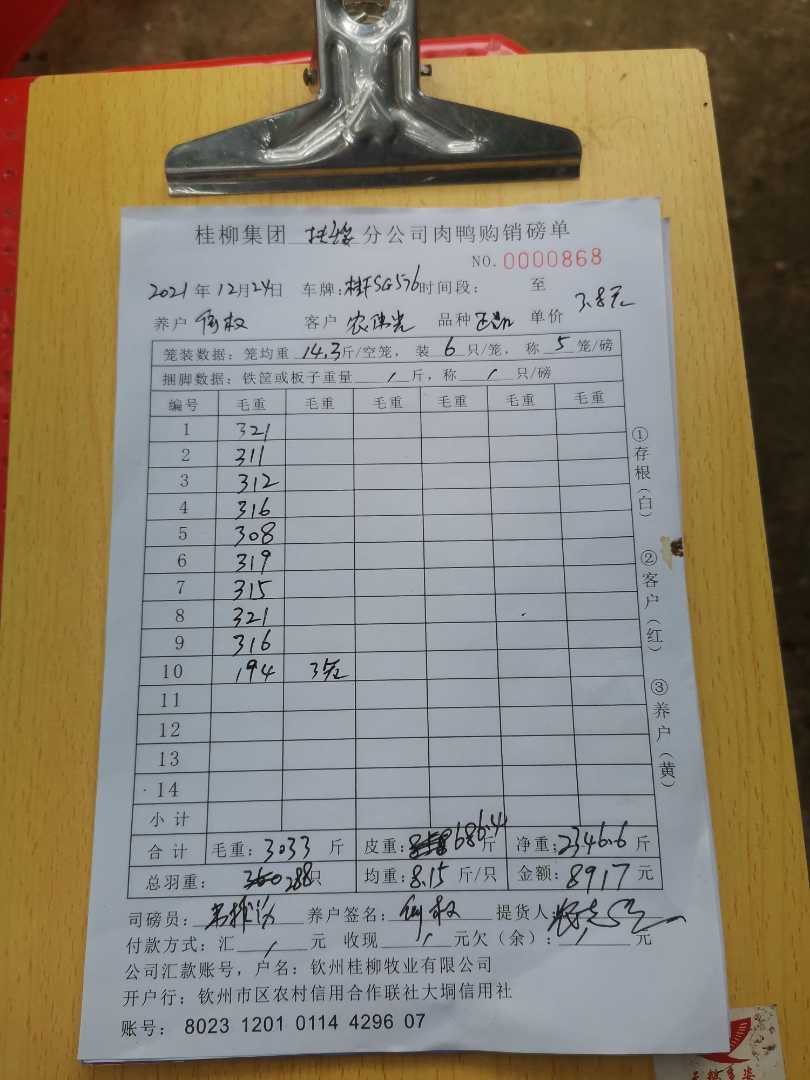 桂柳集团 分公司肉鸭购销磅单
NO.0000868
2021年12月24日 车牌:桂FSG576 时间段: 至
养户 客户 农伟光 品种 单价 3.8元
笼装数据:笼均重 14.3 斤/空笼, 装 6 只/笼, 称 5 笼/磅
捆脚数据:铁筐或板子重量 / 斤,称 / 只/磅
编号 毛重 毛重 毛重 毛重 毛重 毛重
1 321
2 311
3 312
4 316
5 308
6 319
7 315
8 321
9 316
10 194 3笼
11
12
13
14
小计
合计 毛重:3033 斤 皮重:686.4 斤 净重:2346.6 斤
总羽重: 288 只 均重:8.15 斤/只 金额:8917 元
司磅员: 养户签名: 提货人
付款方式:汇 / 元 收现 / 元欠(余): / 元
公司汇款账号,户名:钦州桂柳牧业有限公司
开户行:钦州市区农村信用合作联社大垌信用社
账号: 8023 1201 0114 4296 07
①存根(白)
②客户(红)
③养户(黄)